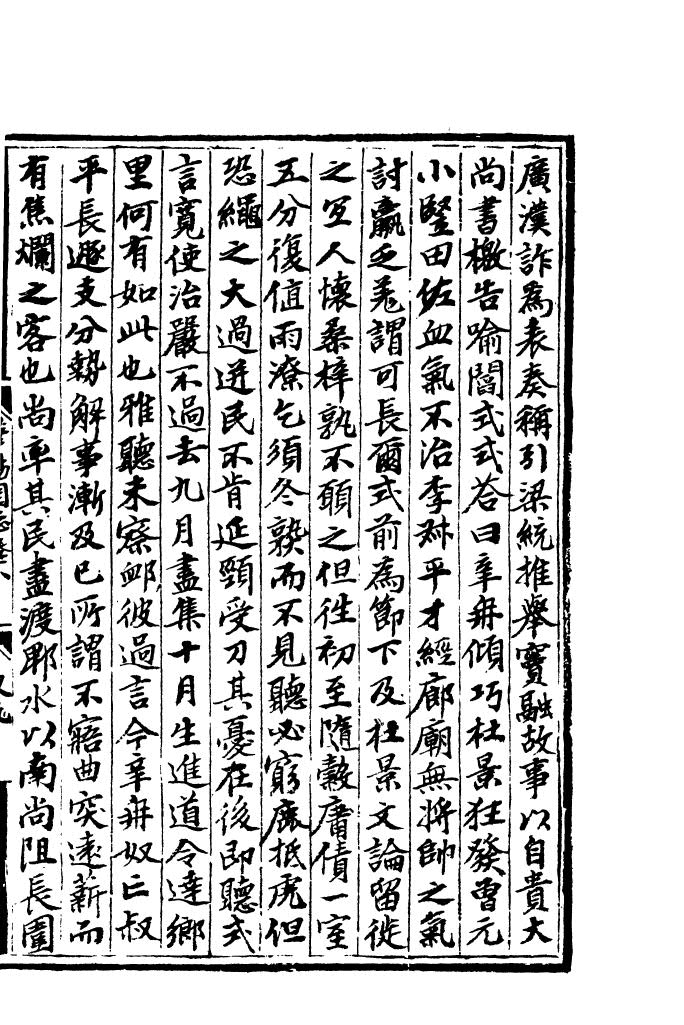 廣漢詐為表奏稱引梁統推舉竇融故事以自貴大
尚書檄告喻閻式式荅曰辛冉傾巧杜景狂發曾元
小豎田佐血氣不治李叔平才經廊廟無將帥之氣
討羸乏羗謂可長爾式前為節下及杜景文論留徙
之宜人懷桑梓孰不願之但徃初至隨穀庸債一室
五分復值雨潦乞須冬熟而不見聽必窮鹿抵虎但
恐繩之大過迸民不肯延頸受刀其憂在後即聽式
言寬使治嚴不過去九月盡集十月生進道令達鄉
里何有如此也雅聽未察衂彼過言今辛冉奴亡叔
平長遯支分勢解事漸及已所謂不寤曲突遠薪而
有焦爛之客也尚率其民盡渡郫水以南尚阻長圍